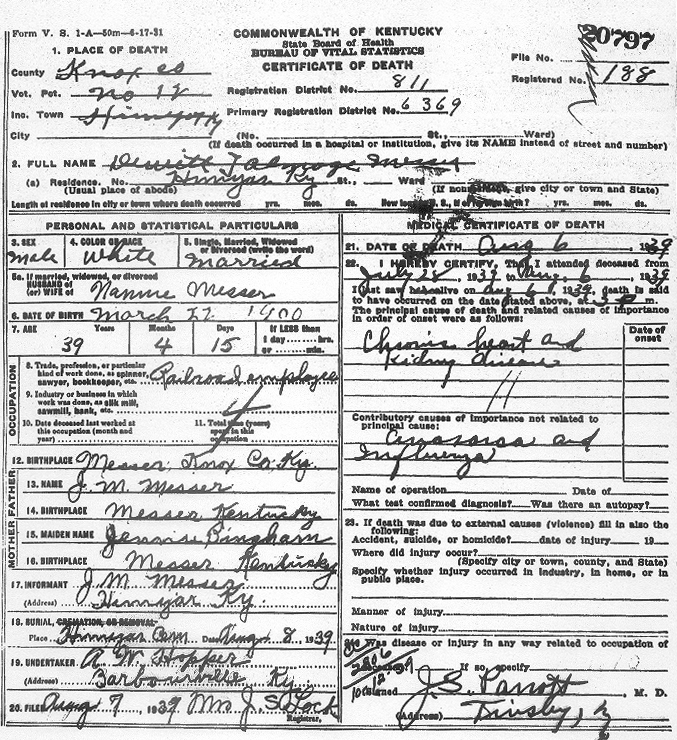 Form V. S. 1-A—50m—6-17-31
COMMONWEALTH OF KENTUCKY
State Board of Health
BUREAU OF VITAL STATISTICS
CERTIFICATE OF DEATH
20797
File No.
Registered No. 188
1. PLACE OF DEATH
County Knox co
Vot. Pct. No 12
Inc. Town Himyar Ky
City
Registration District No. 811
Primary Registration District No. 6369
(No. St., Ward)
(If death occurred in a hospital or institution, give its NAME instead of street and number)
2. FULL NAME Dewitt Talmage Messer
(a) Residence, No. Himyar Ky St., Ward
(Usual place of abode) (If nonresident, give city or town and State)
Length of residence in city or town where death occurred yrs. mos. ds. How long in U. S., if of foreign birth? yrs. mos. ds.
PERSONAL AND STATISTICAL PARTICULARS
3. SEX 4. COLOR OR RACE 5. Single, Married, Widowed
or Divorced (write the word)
male White Married
5a. If married, widowed, or divorced
HUSBAND of
(or) WIFE of Nannie Messer
6. DATE OF BIRTH March 22 1900
7. AGE Years Months Days If LESS than
1 day hrs.
or min.
39 4 15
OCCUPATION
8. Trade, profession, or particular
kind of work done, as spinner,
sawyer, bookkeeper, etc. Railroad employee
9. Industry or business in which
work was done, as silk mill,
sawmill, bank, etc.
10. Date deceased last worked at
this occupation (month and
year)
11. Total time (years)
spent in this
occupation
12. BIRTHPLACE Messer, Knox Co. Ky.
FATHER
13. NAME J. M. Messer
14. BIRTHPLACE Messer Kentucky
MOTHER
15. MAIDEN NAME Bingham
16. BIRTHPLACE Messer Kentucky
17. INFORMANT J. M. Messer
(Address) Himyar Ky
18. BURIAL, CREMATION, OR REMOVAL
Place Himyar Cem Date Aug 8, 1939
19. UNDERTAKER A. W. Hopper
(Address) Barbourville, Ky.
20. FILED Aug 7, 1939 Mrs J. S. Lock
Registrar.
MEDICAL CERTIFICATE OF DEATH
21. DATE OF DEATH Aug 6 1939
22. I HEREBY CERTIFY, That I attended deceased from
July 28, 1939 to Aug. 6, 1939
I last saw him alive on Aug 6, 1939, death is said
to have occurred on the date stated above, at 3 p m.
The principal cause of death and related causes of importance
in order of onset were as follows:
Date of
onset
Chronic heart and
Kidney disease
Contributory causes of importance not related to
principal cause:
Anasarca and
Influenza
Name of operation Date of
What test confirmed diagnosis? Was there an autopsy?
23. If death was due to external causes (violence) fill in also the
following:
Accident, suicide, or homicide? date of injury 19
Where did injury occur?
(Specify city or town, county, and State)
Specify whether injury occurred in industry, in home, or in
public place.
Manner of injury
Nature of injury
Was disease or injury in any way related to occupation of
If so, specify
(Signed) J. S. Parrott, M. D.
(Address) Tinsley, Ky